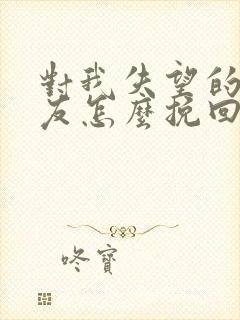 對我失望的
友怎麼挽回
咚寶